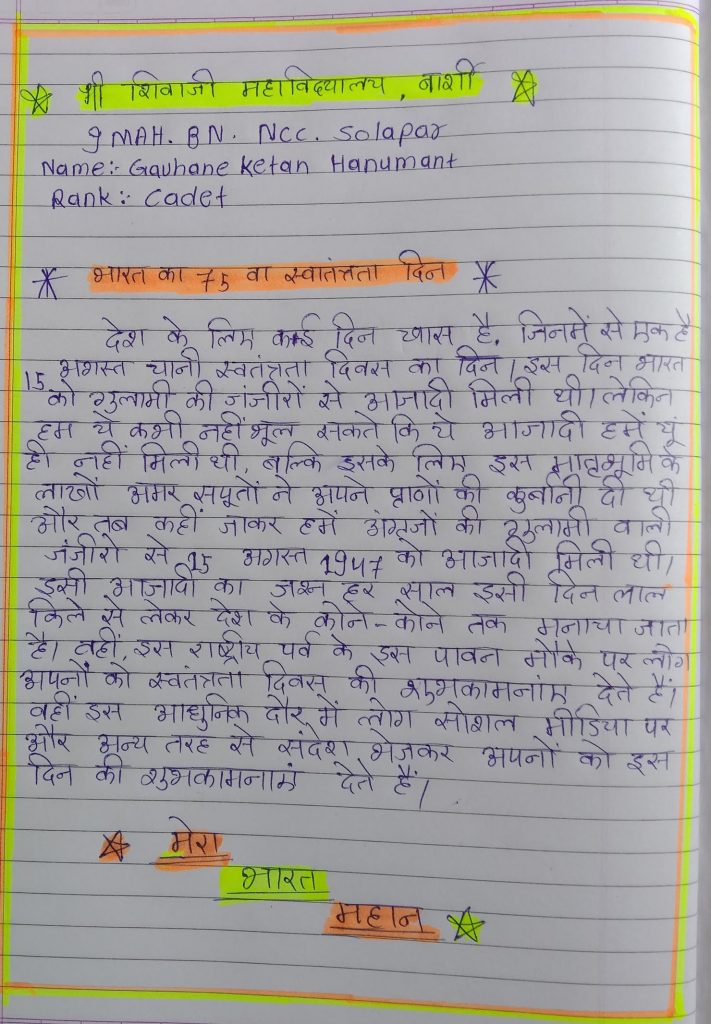 श्री शिवाजी महाविद्यालय, बार्शी
9 MAH. BN. NCC. Solapar
Name:- Gavhane Ketan Hanumant
Rank:- Cadet
भारत का 75 वा स्वातंत्रता दिन
देश के लिए कई दिन खास है, जिनमें से एक है
15 अगस्त यानी स्वतंत्रता दिवस का दिन। इस दिन भारत
को गुलामी की जंजीरों से आजादी मिली थी। लेकिन
हम ये कभी नहीं भूल सकते कि ये आजादी हमें यूं
ही नहीं मिली थी, बल्कि इसके लिए इस मातृभूमि के
लाखों अमर सपूतों ने अपने प्राणों की कुर्बानी दी थी
और तब कहीं जाकर हमें अंग्रजों की गुलामी वाली
जंजीरो से 15 अगस्त 1947 को आजादी मिली थी।
इसी आजादी का जश्न हर साल इसी दिन लाल
किले से लेकर देश के कोने-कोने तक मनाया जाता
है। वहीं, इस राष्ट्रीय पर्व के इस पावन मौके पर लोग
अपनों को स्वतंत्रता दिवस की शुभकामनांए देते हैं।
वहीं इस आधुनिक दौर में लोग सोशल मीडिया पर
और अन्य तरह से संदेश भेजकर अपनों को इस
दिन की शुभकामनाएं देते हैं।
मेरा
भारत
महान